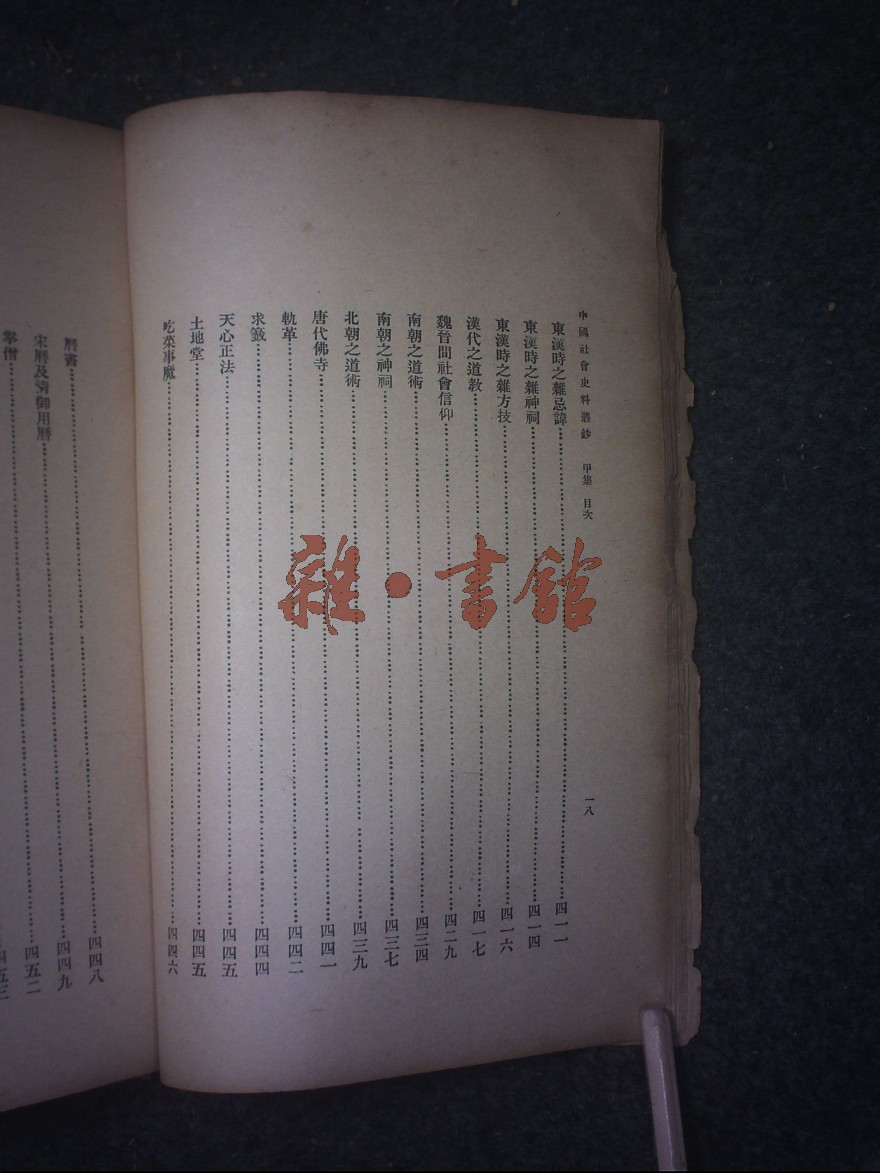 中國社會史料叢鈔 甲集 目次 一八
東漢時之雜忌諱……四一一
東漢時之雜神祠……四一四
東漢時之雜方技……四一六
漢代之道教……四一七
魏晉間社會信仰……四二九
南朝之道術……四三四
南朝之神祠……四三七
北朝之道術……四三九
唐代佛寺……四四一
軌革……四四二
求籤……四四四
天心正法……四四五
土地堂……四四五
吃菜事魔……四四六
四四八
曆書……四四九
宋曆及清御用曆……四五二
拳僧……四五三
雜·書館